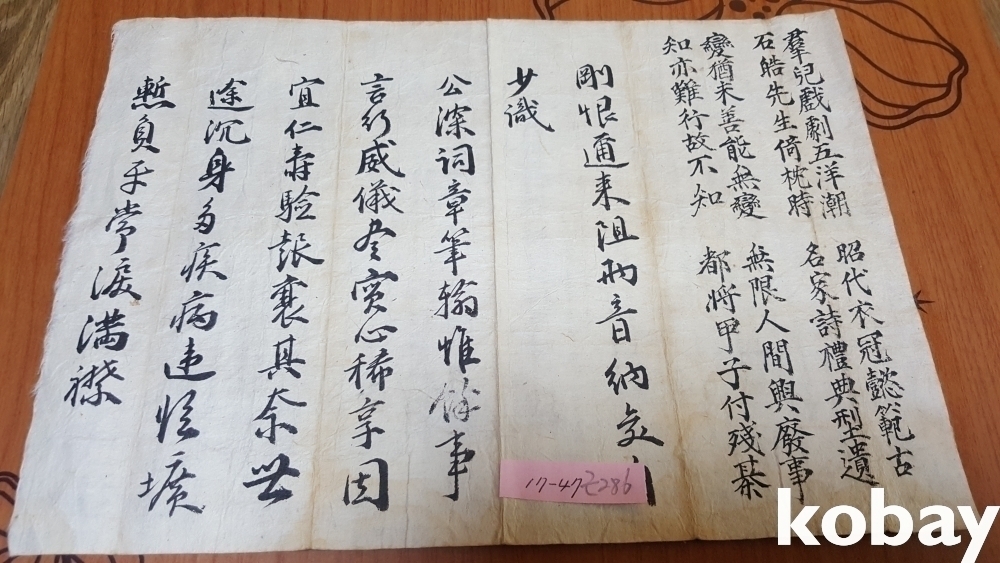 羣兒戲劇五洋潮
石皓先生倚枕時
變猶未善能無變
知亦難行故不知
昭代衣冠懿範古
名家詩禮典型遺
無限人間興廢事
都將甲子付殘棊
剛恨邇来阻兩音納交
少識
公深詞章筆翰惟餘事
言行威儀尽實心稀享因
宜仁壽驗報衰其奈世
途沉身多疾病違臨壙
慙負平常淚満襟
17-47-286
kobay